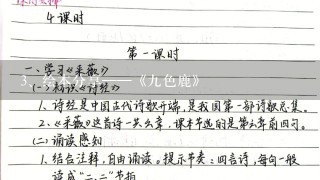 4课时
第一课时
一、学习《采薇》
3、绘本分享——《九色鹿》
(一)初识《诗经》
1、诗经是中国古代诗歌开端,是我国第一部诗歌总集。
2、《采薇》这首诗一共六章,课本节选的是第六章前四句。
(二)诵读感知
1、结合注释,自由诵读。提示节奏:四言诗,每句一般
读成“二、二”节拍